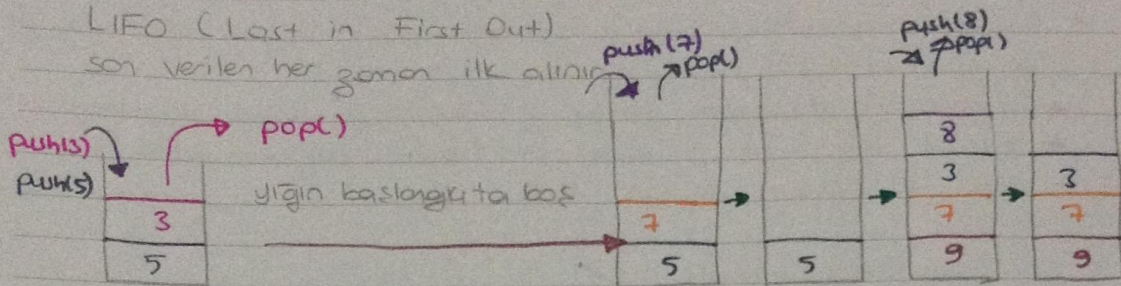 LIFO (Last in First Out)
son verilen her zaman ilk alınır
push(7)
pop()
push(8)
pop()
push(3)
pop()
push(5)
yığın başlangıçta boş
3
5
7
5
5
8
3
7
9
3
7
9